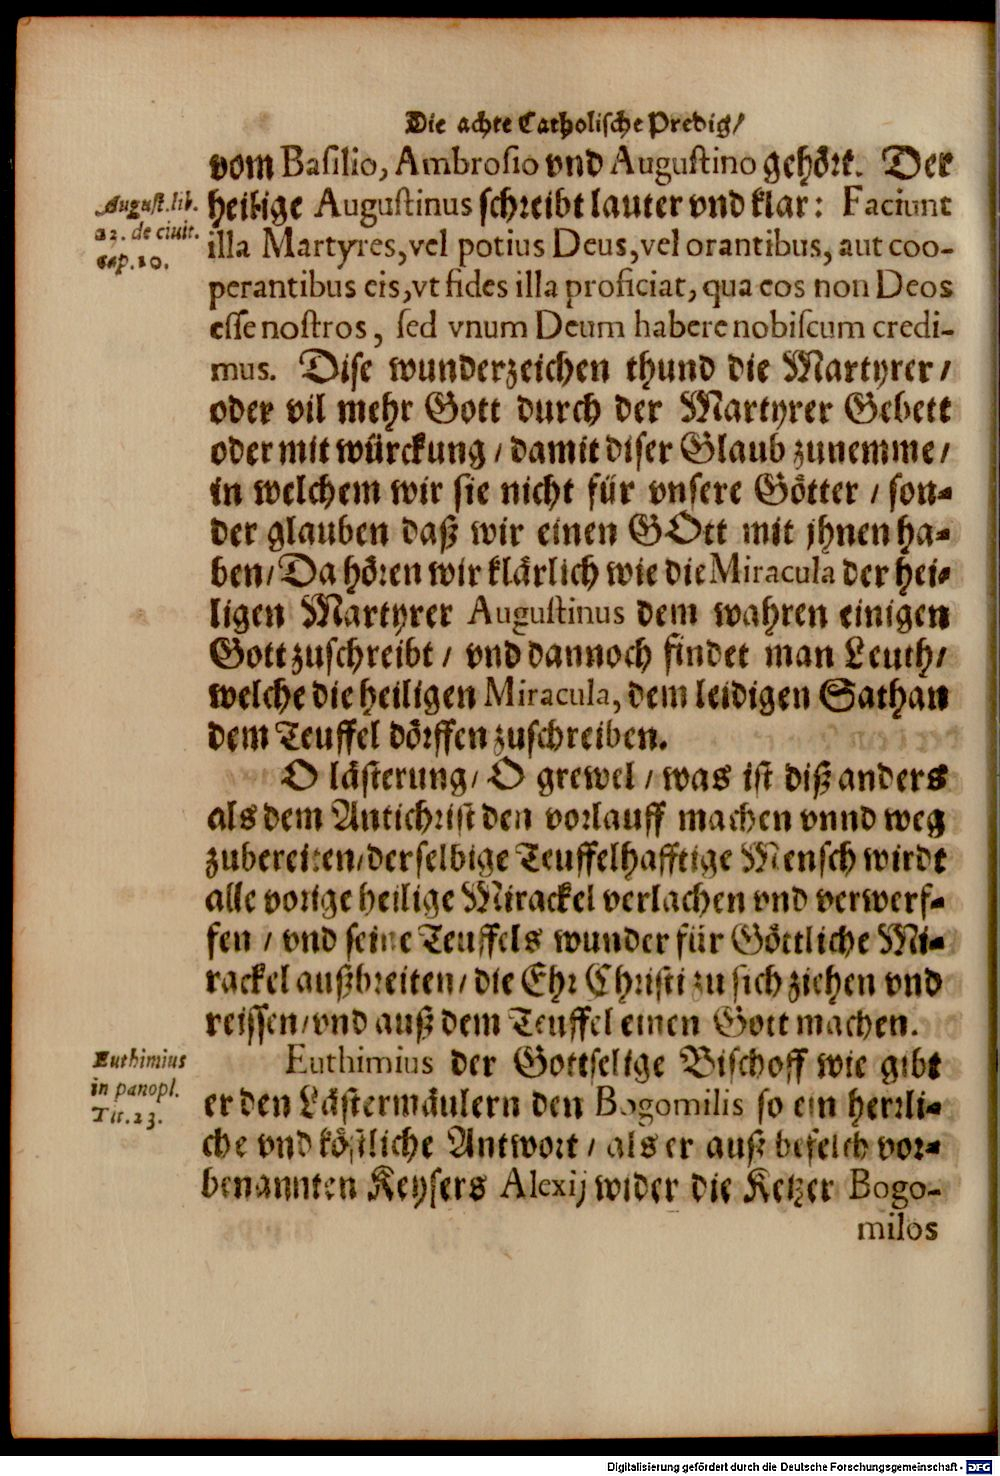 Die achte Catholische Predig/
vom Basilio, Ambrosio vnd Augustino gehört. Der
August. lib.
22. de ciuit.
cap. 10.
heilige Augustinus schreibt lauter vnd klar: Faciunt
illa Martyres, vel potius Deus, vel orantibus, aut coo-
perantibus eis, vt fides illa proficiat, qua eos non Deos
esse nostros, sed vnum Deum habere nobiscum credi-
mus. Dise wunderzeichen thund die Martyrer/
oder vil mehr Gott durch der Martyrer Gebett
oder mit würckung/ damit diser Glaub zunemme/
in welchem wir sie nicht für vnsere Götter/ son-
der glauben daß wir einen GOtt mit jhnen ha-
ben/ Da hören wir klärlich wie die Miracula der hei-
ligen Martyrer Augustinus dem wahren einigen
Gott zuschreibt/ vnd dannoch findet man Leuth/
welche die heiligen Miracula, dem leidigen Sathan
dem Teuffel dörffen zuschreiben.
O lästerung/ O grewel/ was ist diß anders
als dem Antichrist den vorlauff machen vnnd weg
zubereiten/ derselbige Teuffelhafftige Mensch wirdt
alle vorige heilige Mirackel verlachen vnd verwerf-
fen/ vnd seine Teuffels wunder für Göttliche Mi-
rackel außbreiten/ die Ehr Christi zu sich ziehen vnd
reissen/ vnd auß dem Teuffel einen Gott machen.
Euthimius
in panopl.
Tit. 23.
Euthimius der Gottselige Bischoff wie gibt
er den Lästermäulern den Bogomilis so ein herrli-
che vnd köstliche Antwort/ als er auß befelch vor-
benannten Keysers Alexij wider die Ketzer Bogo-
milos
Digitalisierung gefördert durch die Deutsche Forschungsgemeinschaft - DFG